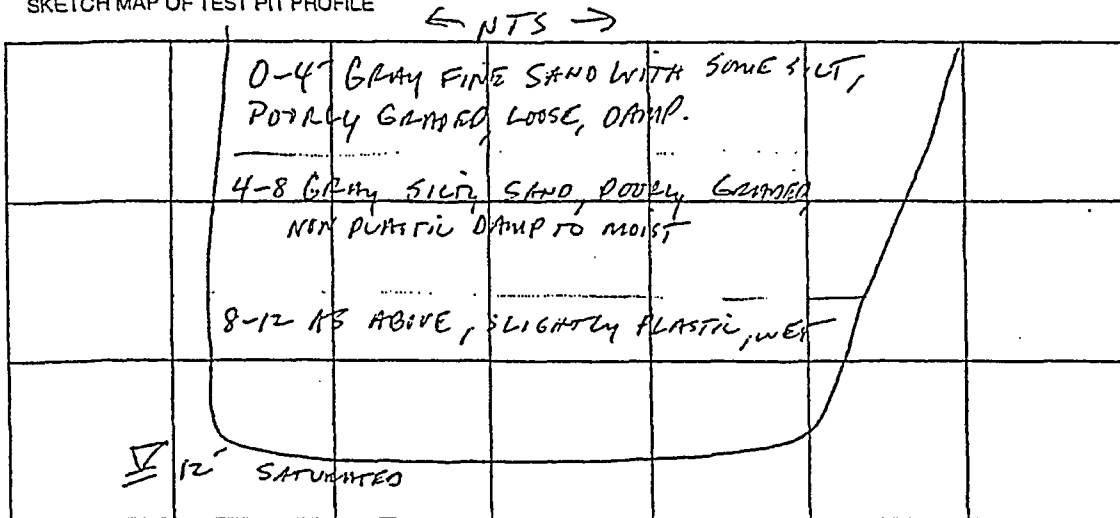 SKETCH MAP OF TEST PIT PROFILE
← NTS →
0-4' GRAY FINE SAND WITH SOME SILT,
POORLY GRADED, LOOSE, DAMP.
4-8 GRAY SILTY SAND, POORLY GRADED,
NON PLASTIC DAMP TO MOIST
8-12 AS ABOVE, SLIGHTLY PLASTIC, WET
12' SATURATED